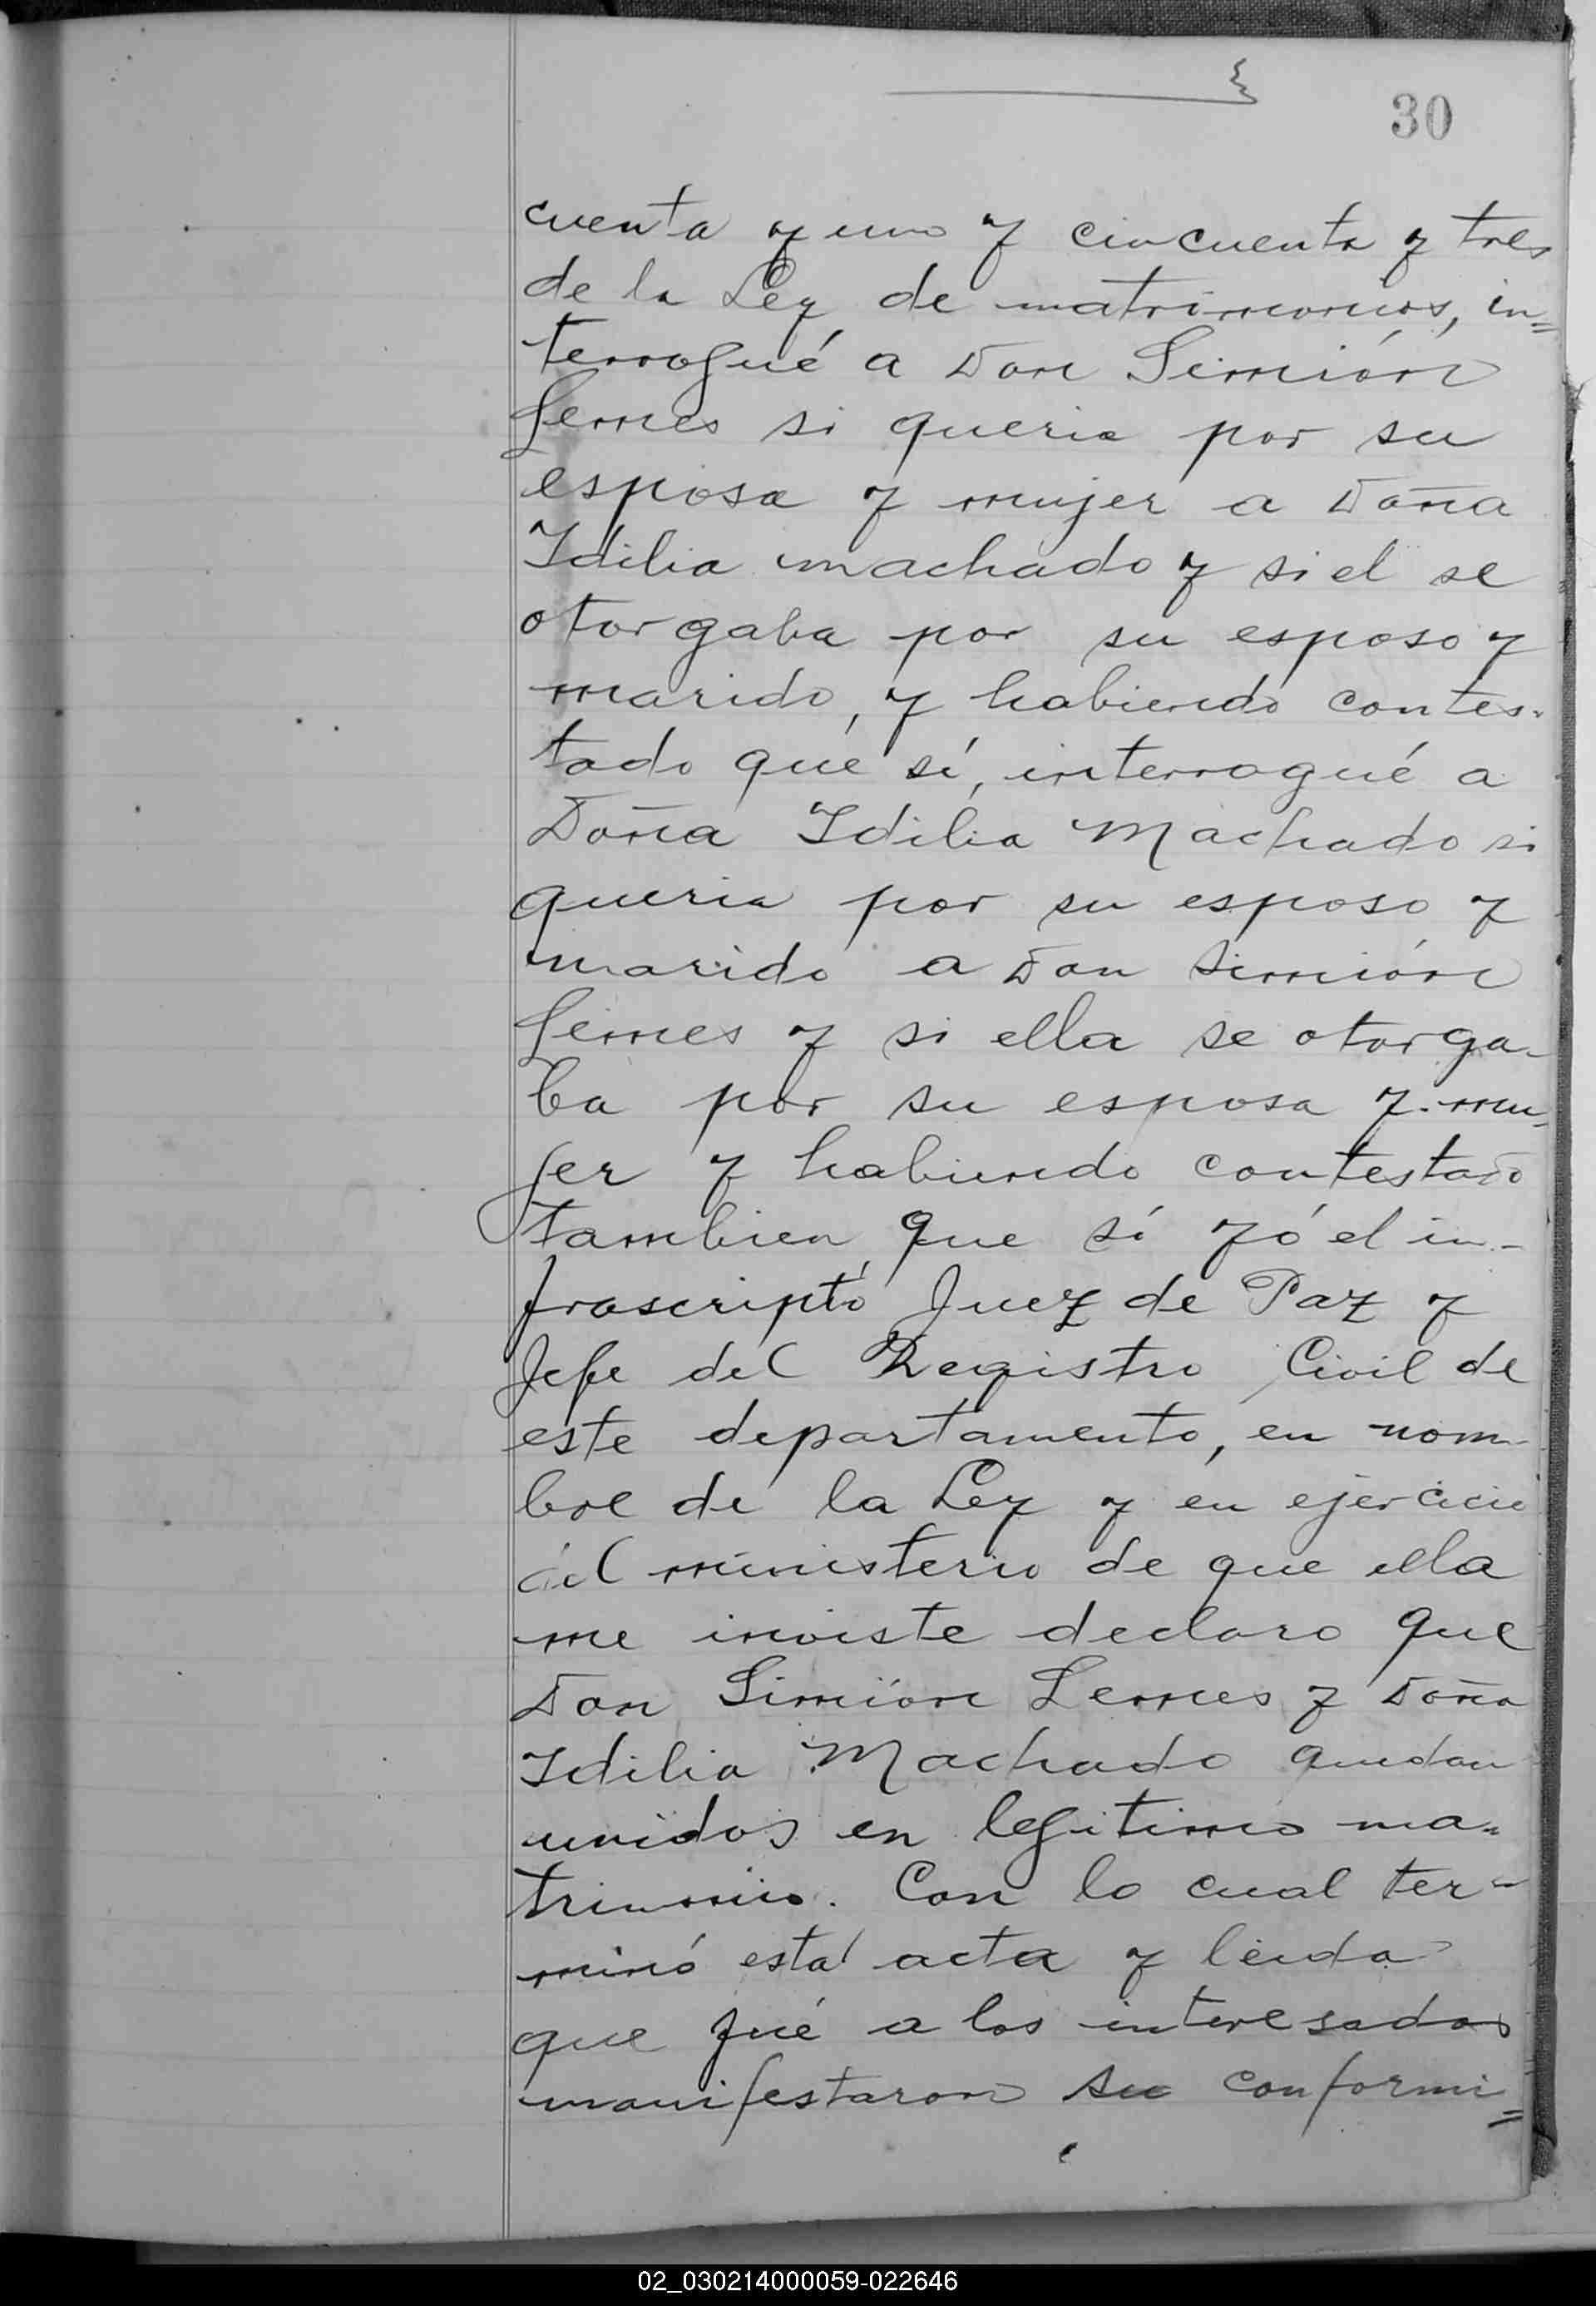 30
cuenta y uno y cincuenta y tres
de la Ley de matrimonios, in=
terrogué a Don Simión
Lemes si queria por su
esposa y mujer a Doña
Idilia machado y si el se
otorgaba por su esposo y
marido, y habiendo contes-
tado que sí, interrogué a
Doña Idilia Machado si
queria por su esposo y
marido a Don Simión
Lemes y si ella se otorga-
ba por su esposa y mu-
jer y habiendo contestado
tambien que sí yó el in-
frascripto Juez de Paz y
Jefe del Registro Civil de
este departamento, en nom-
bre de la Ley y en ejercicio
del ministerio de que ella
me inviste declaro que
Don Simión Lemes y Doña
Idilia Machado quedan
unidos en legitimo ma-
trimonio. Con lo cual ter-
minó esta acta y leida
que fué a los interesados
manifestaron su conformi=
02_030214000059-022646